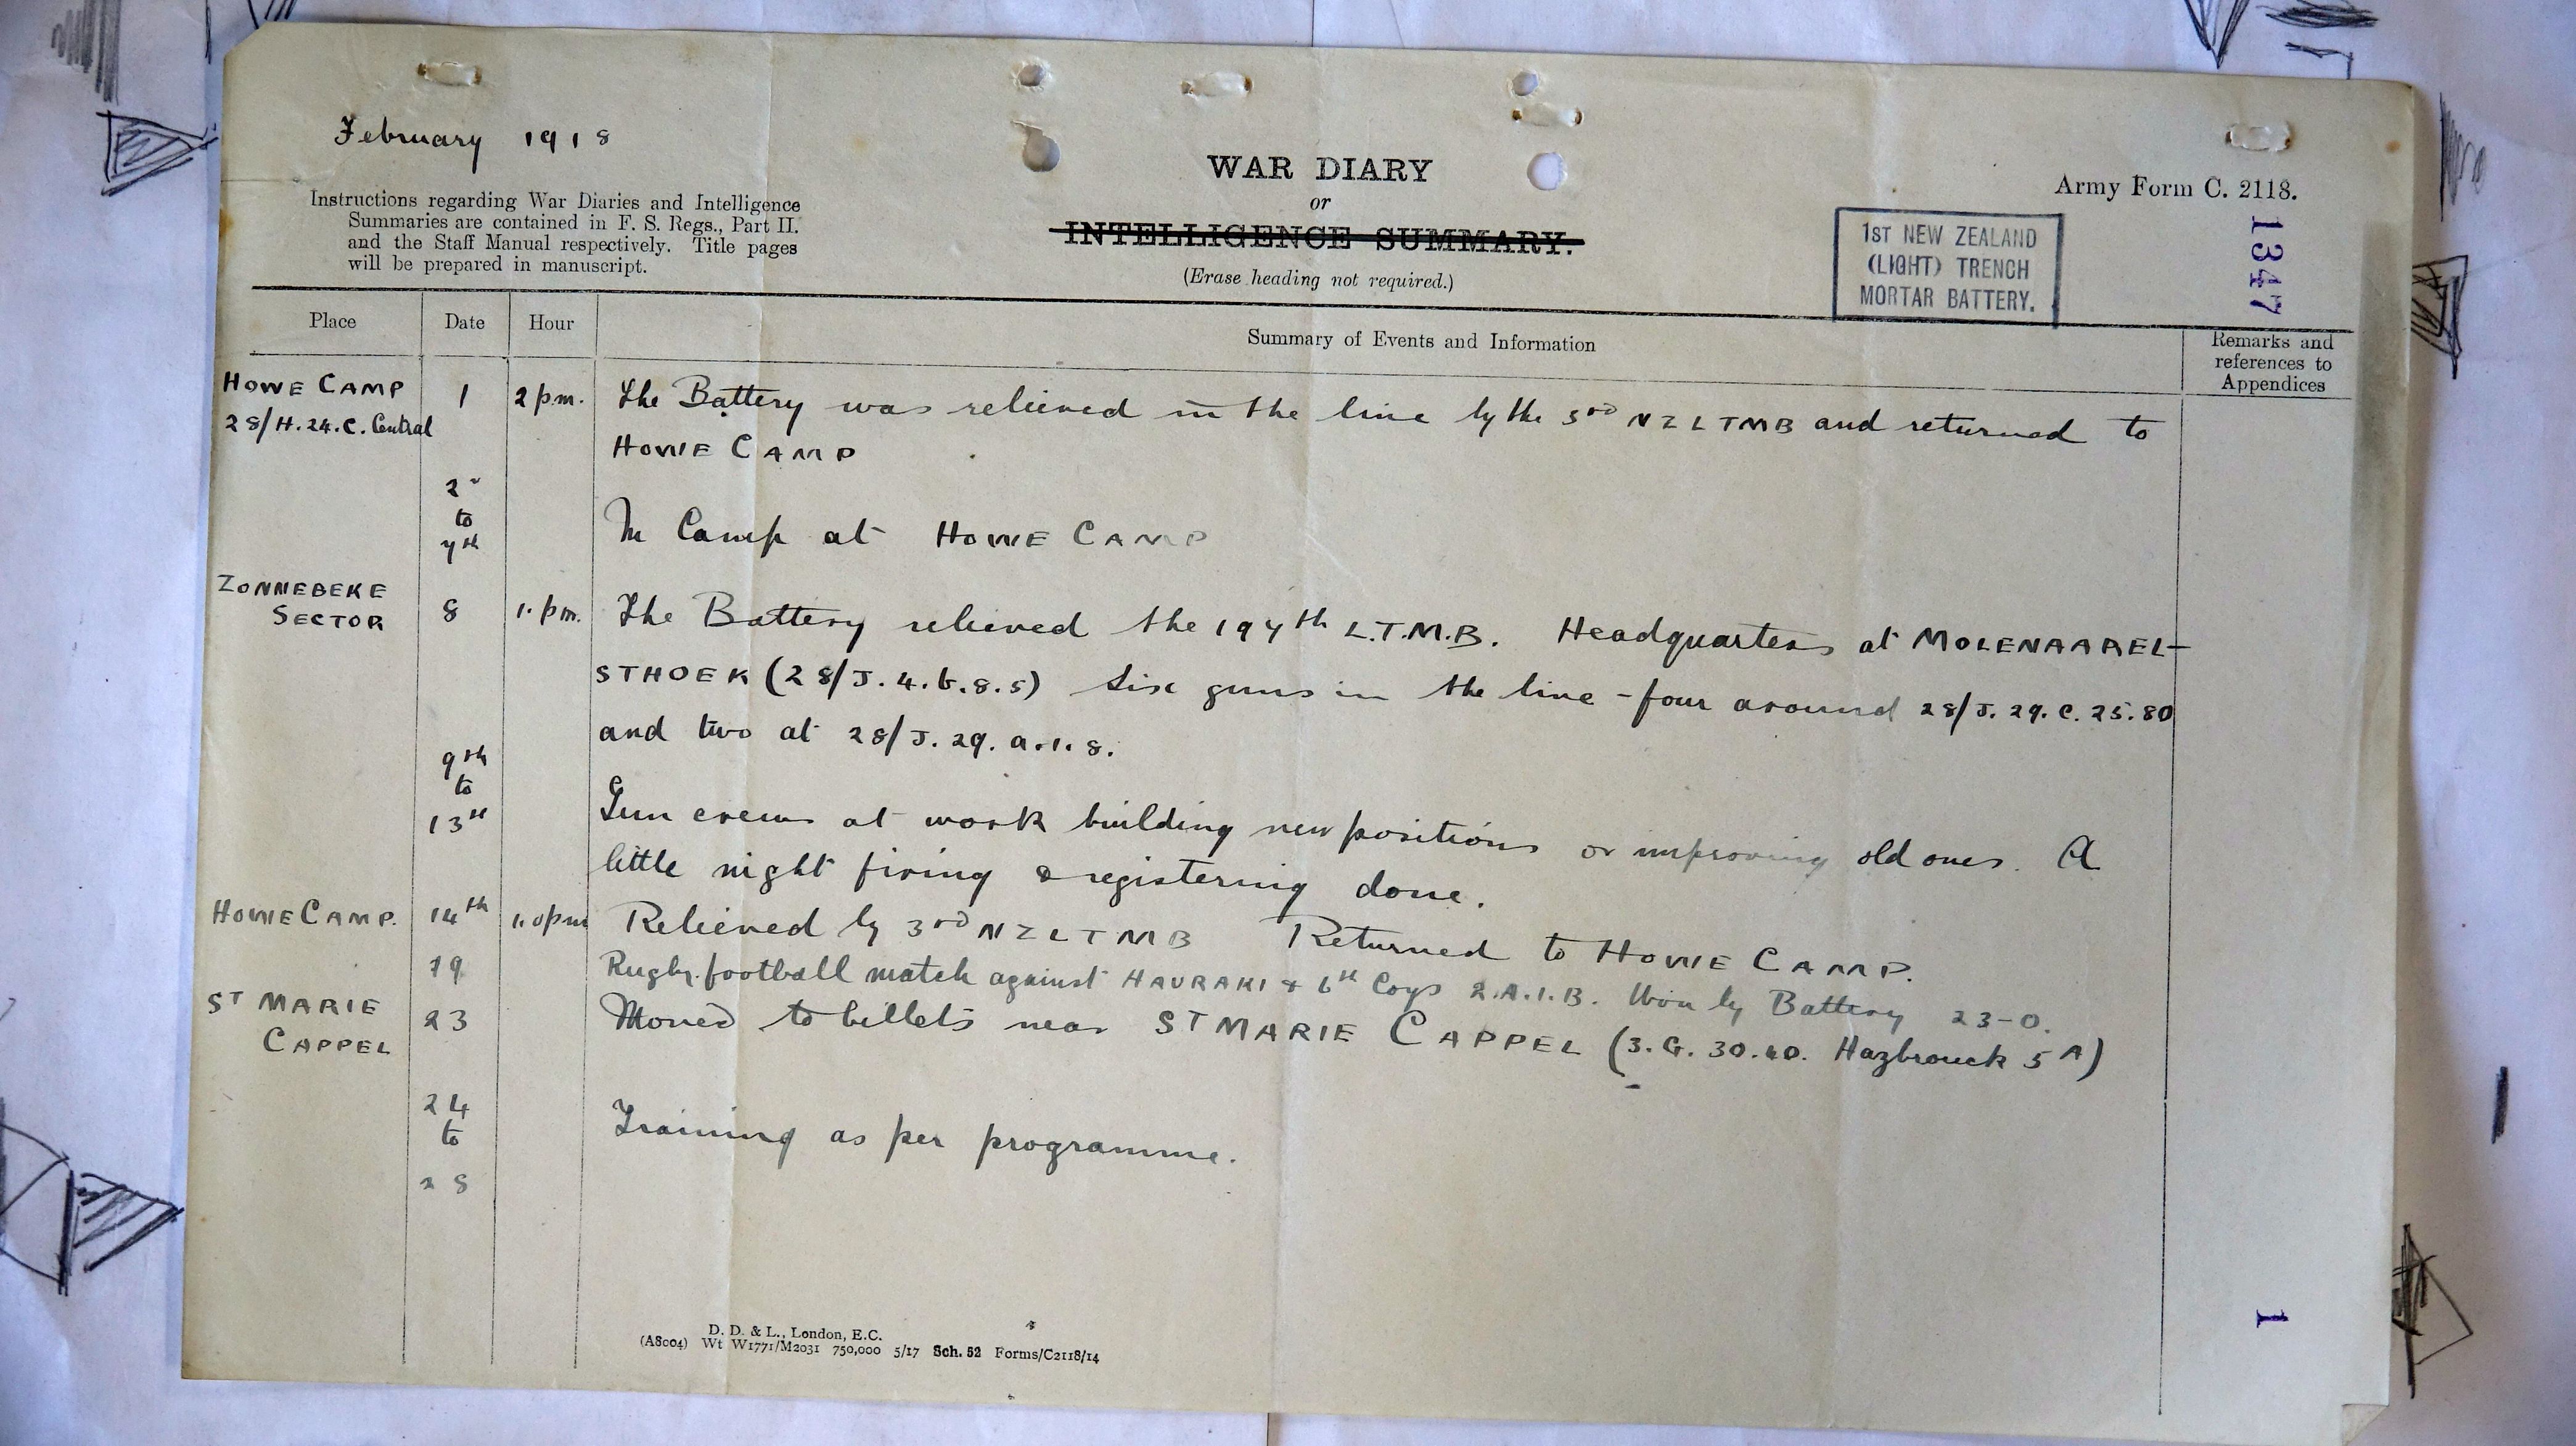 February 1918
Instructions regarding War Diaries and Intelligence
Summaries are contained in F. S. Regs., Part II.
and the Staff Manual respectively. Title pages
will be prepared in manuscript.
WAR DIARY
or
INTELLIGENCE SUMMARY.
(Erase heading not required.)
Army Form C. 2118.
1ST NEW ZEALAND
(LIGHT) TRENCH
MORTAR BATTERY.
1347
Place Date Hour Summary of Events and Information Remarks and
references to
Appendices
HOWE CAMP 1 2 pm. The Battery was relieved in the line by the 3rd NZLTMB and returned to
28/H.24.C. Central HOWE CAMP
2
to
7th In Camp at HOWE CAMP
ZONNEBEKE
SECTOR 8 1. pm. The Battery relieved the 197th L.T.M.B. Headquarters at MOLENAAREL-
STHOEK (28/J.4.b.8.5) Six guns in the line - four around 28/J.29.C.25.80
and two at 28/J.29.a.1.8.
9th
to
13th Gun crews at work building new positions or improving old ones. A
little night firing & registering done.
HOWE CAMP. 14th 1.0pm Relieved by 3rd NZLTMB Returned to HOWE CAMP.
19 Rugby football match against HAURAKI & 6th Coys Won by Battery 23-0.
ST MARIE
CAPPEL 23 Moved to billets near ST MARIE CAPPEL (3.G.30.40. Hazbrouck 5A)
24
to Training as per programme.
28
D. D. & L., London, E.C.
(A8004) Wt W1771/M2031 750,000 5/17 Sch. 52 Forms/C2118/14
1